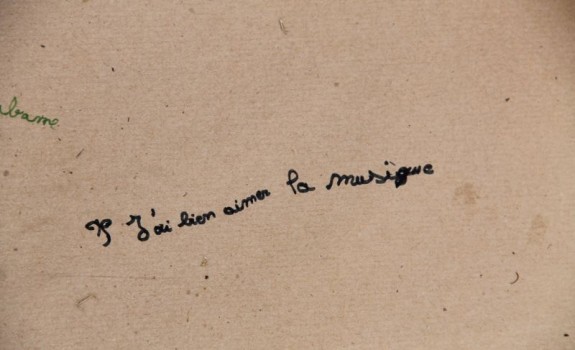 J'ai bien aimer la musique